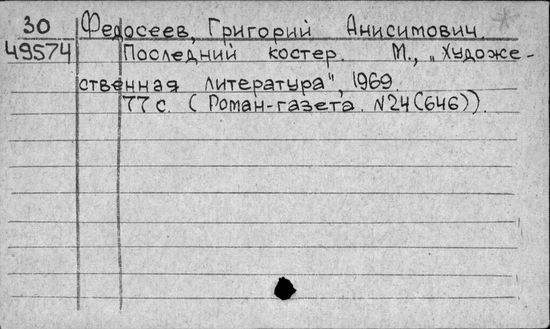 30 Федосеев, Григорий Анисимович.
49574 Последний костер. М., „Художе-
ственная литература", 1969.
77 с. (Роман-газета. N24(646)).